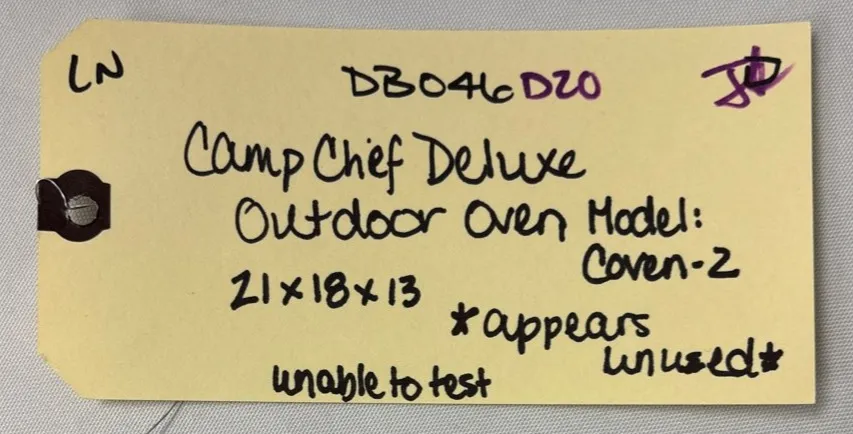 LN DB046D20
Camp Chef Deluxe
Outdoor Oven Model:
Coven-2
21x18x13
*appears
unused*
unable to test